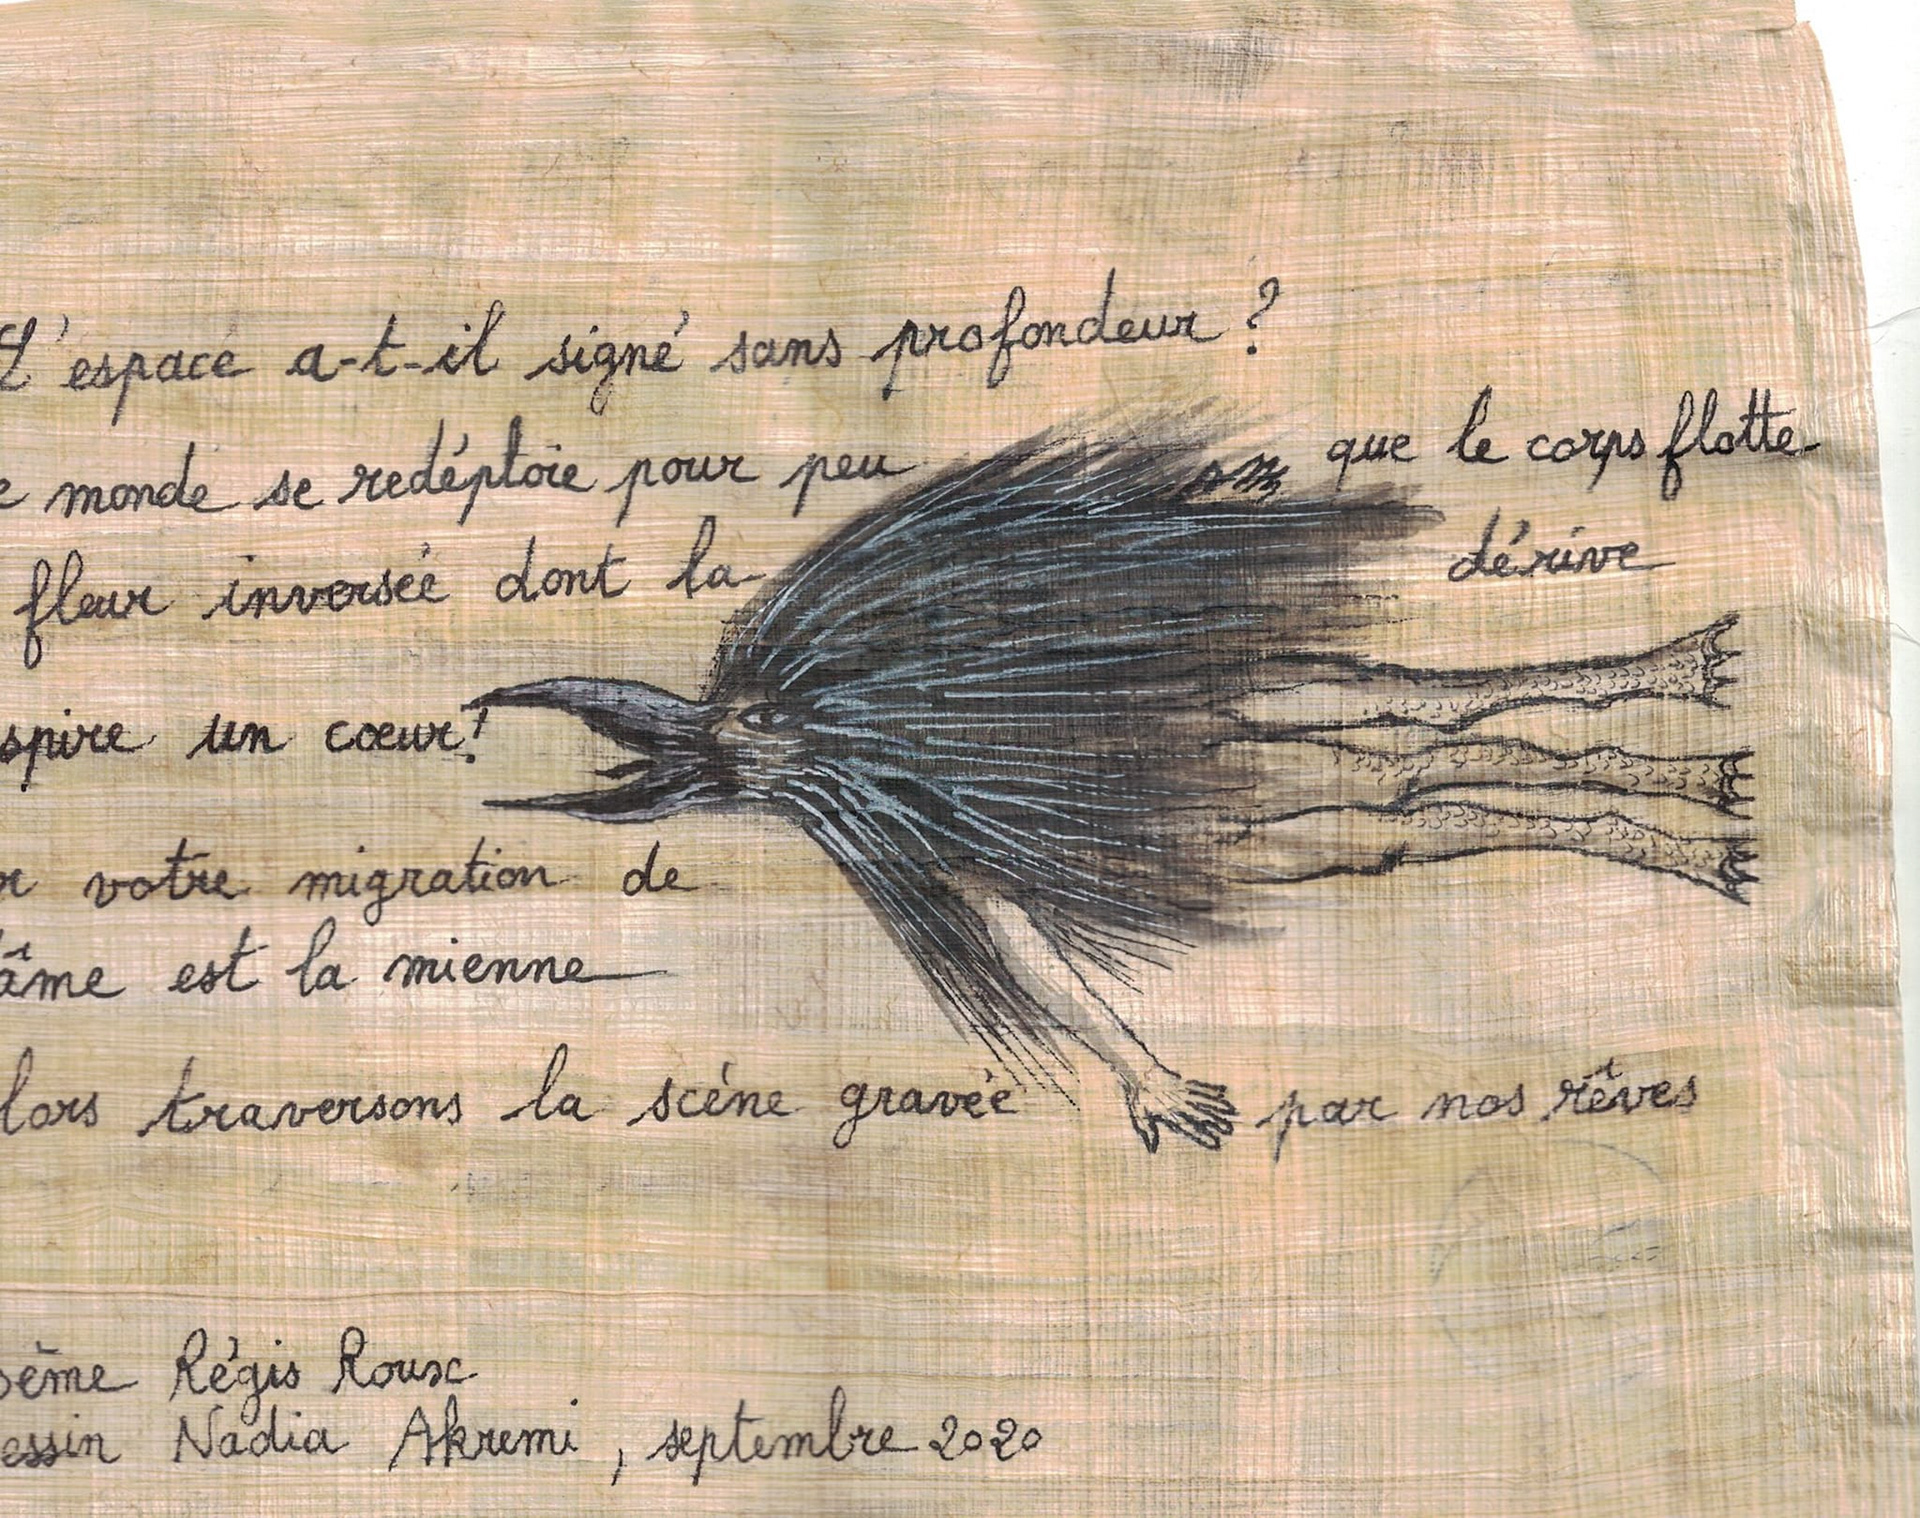 L'espace a-t-il signé sans profondeur ?
e monde se redéploie pour peu que le corps flotte
fleur inversée dont la dérive
spire un cœur !
r votre migration de
âme est la mienne
lors traversons la scène gravée par nos rêves
oème Régis Roux
essin Nadia Akremi, septembre 2020